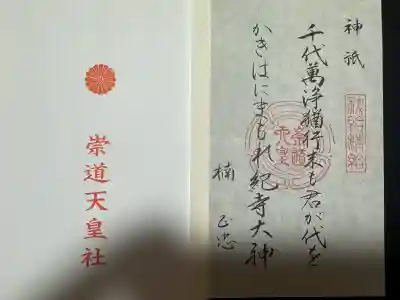 神祇
千代萬浄猶行末も君が代を
かきはにまもれ紀寺大神
楠
正忠
崇道天皇
崇道天皇社